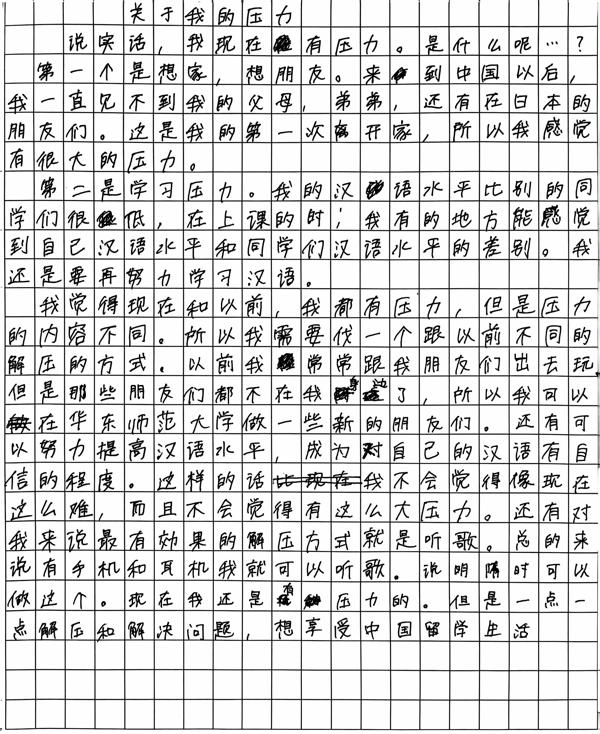 关于我的压力
说实话，我现在有压力。是什么呢…？
第一个是想家，想朋友。来到中国以后，
我一直见不到我的父母，弟弟，还有在日本的
朋友们。这是我的第一次离开家，所以我感觉
有很大的压力。
第二是学习压力。我的汉语水平比别的同
学们很低，在上课的时，我有的地方能感觉
到自己汉语水平和同学们汉语水平的差别。我
还是要再努力学习汉语。
我觉得现在和以前，我都有压力，但是压力
的内容不同。所以我需要伐一个跟以前不同的
解压的方式。以前我常常跟我朋友们出去玩
但是那些朋友们都不在我身边了，所以我可以
在华东师范大学做一些新的朋友们。还有可
以努力提高汉语水平，成为对自己的汉语有自
信的程度。这样的话我不会觉得像现在
这么难，而且不会觉得有这么大压力。还有对
我来说最有效果的解压方式就是听歌。总的来
说有手机和耳机我就可以听歌。说明随时可以
做这个。现在我还是有压力的。但是一点一
点解压和解决问题，想享受中国留学生活